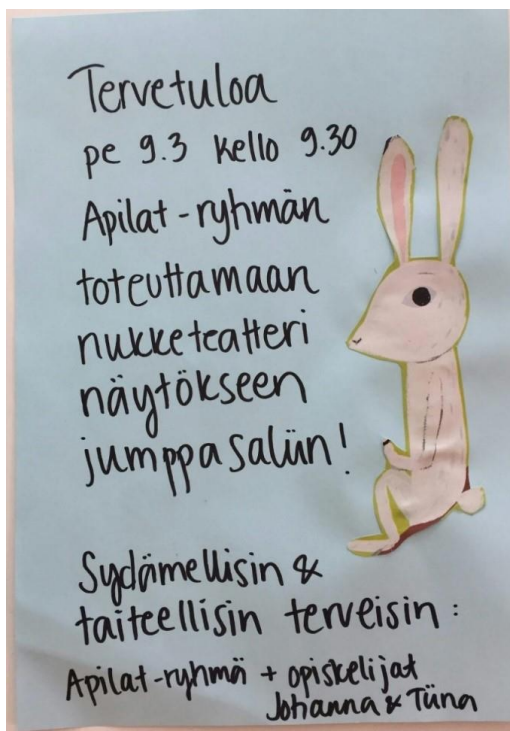 Tervetuloa
pe 9.3 kello 9.30
Apilat-ryhmän
toteuttamaan
nukketeatteri
näytökseen
jumppasaliin!
Sydämellisin &
taiteellisin terveisin:
Apilat-ryhmä + opiskelijat
Johanna & Tiina